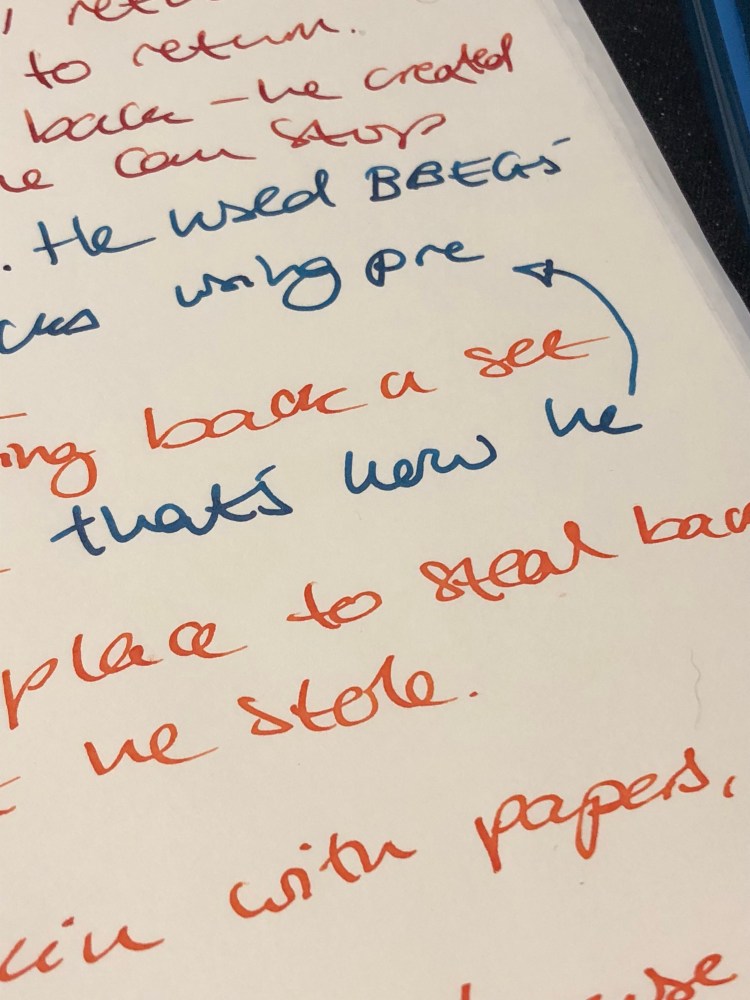 to return.
back - he created
he can stop
. He used BBEG's
using pre
ing back a set
that's how he
place to steal bac
he stole.
with papers,